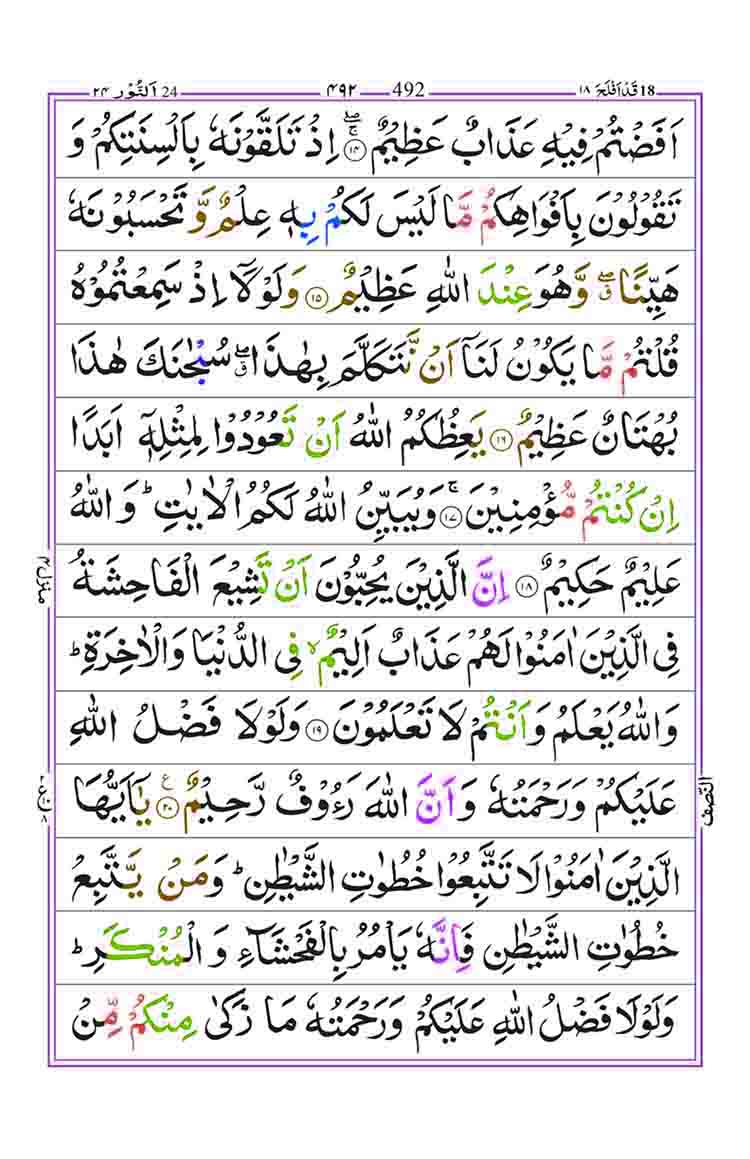 18 قَدۡ اَفۡلَحَ ١٨ 492 ۴۹۲ 24 اَلنُّوۡر ۲۴
اَفَضۡتُمۡ فِيۡهِ عَذَابٌ عَظِيۡمٌ ۚۖ‏ ﴿۱۴﴾ اِذۡ تَلَقَّوۡنَهٗ بِاَلۡسِنَتِكُمۡ وَ
تَقُوۡلُوۡنَ بِاَفۡوَاهِكُمۡ مَّا لَـيۡسَ لَـكُمۡ بِهٖ عِلۡمٌ وَّ تَحۡسَبُوۡنَهٗ
هَيِّنًا ‌ۖ ق وَّهُوَ عِنۡدَ اللّٰهِ عَظِيۡمٌ‏ ﴿۱۵﴾ وَ لَوۡلَاۤ اِذۡ سَمِعۡتُمُوۡهُ
قُلۡتُمۡ مَّا يَكُوۡنُ لَـنَاۤ اَنۡ نَّـتَكَلَّمَ بِهٰذَا ‌ۖ ق سُبۡحٰنَكَ هٰذَا
بُهۡتَانٌ عَظِيۡمٌ‏ ﴿۱۶﴾ يَعِظُكُمُ اللّٰهُ اَنۡ تَعُوۡدُوۡا لِمِثۡلِهٖۤ اَبَدًا
اِنۡ كُنۡتُمۡ مُّؤۡمِنِيۡنَ​ۚ‏ ﴿۱۷﴾ وَيُبَيِّنُ اللّٰهُ لَـكُمُ الۡاٰيٰتِ​ؕ وَ اللّٰهُ
عَلِيۡمٌ حَكِيۡمٌ‏ ﴿۱۸﴾ اِنَّ الَّذِيۡنَ يُحِبُّوۡنَ اَنۡ تَشِيۡعَ الۡفَاحِشَةُ
فِى الَّذِيۡنَ اٰمَنُوۡا لَهُمۡ عَذَابٌ اَلِيۡمٌۙ فِى الدُّنۡيَا وَالۡاٰخِرَةِ​ؕ
وَاللّٰهُ يَعۡلَمُ وَاَنۡـتُمۡ لَا تَعۡلَمُوۡنَ‏ ﴿۱۹﴾ وَلَوۡلَا فَضۡلُ اللّٰهِ
عَلَيۡكُمۡ وَرَحۡمَتُهٗ وَاَنَّ اللّٰهَ رَءُوۡفٌ رَّحِيۡمٌ‏ ﴿۲۰﴾ ع يٰۤـاَيُّهَا
الَّذِيۡنَ اٰمَنُوۡا لَا تَتَّبِعُوۡا خُطُوٰتِ الشَّيۡطٰنِ​ ؕ وَمَنۡ يَّتَّبِعۡ
خُطُوٰتِ الشَّيۡطٰنِ فَاِنَّهٗ يَاۡمُرُ بِالۡـفَحۡشَآءِ وَالۡمُنۡكَرِ​ ؕ
وَلَوۡلَا فَضۡلُ اللّٰهِ عَلَيۡكُمۡ وَرَحۡمَتُهٗ مَا زَكٰى مِنۡكُمۡ مِّنۡ
منزل ۴
النّصف
ع ۸